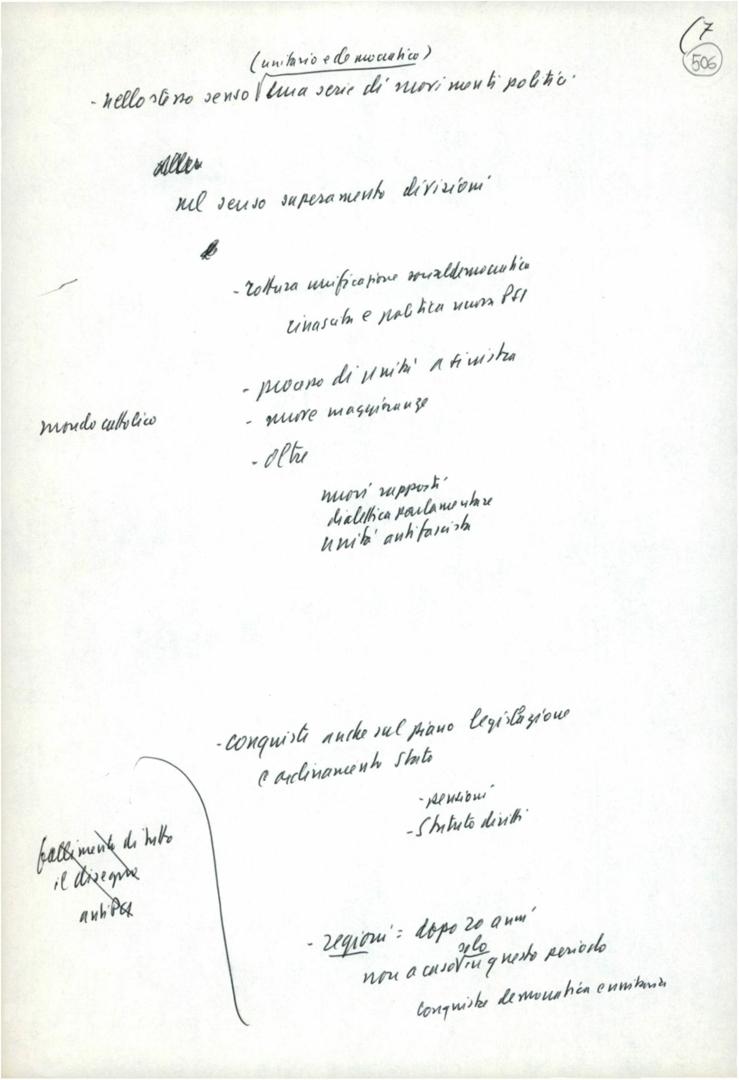 (7
506
(unitario e democratico)
- nello stesso senso √ una serie di movimenti politici
nel senso superamento divisioni
- rottura unificazione socialdemocratica
rinascita e politica nuova PSI
- processo di unità a sinistra
mondo cattolico
- nuove maggioranze
- oltre
nuovi rapporti
dialettica parlamentare
unità antifascista
- conquiste anche sul piano legislazione
e ordinamento Stato
- pensioni
- Statuto diritti
fallimento di tutto
il disegno
anti PCI
- regioni = dopo 20 anni
solo
non a caso √ in questo periodo
conquista democratica e unitaria